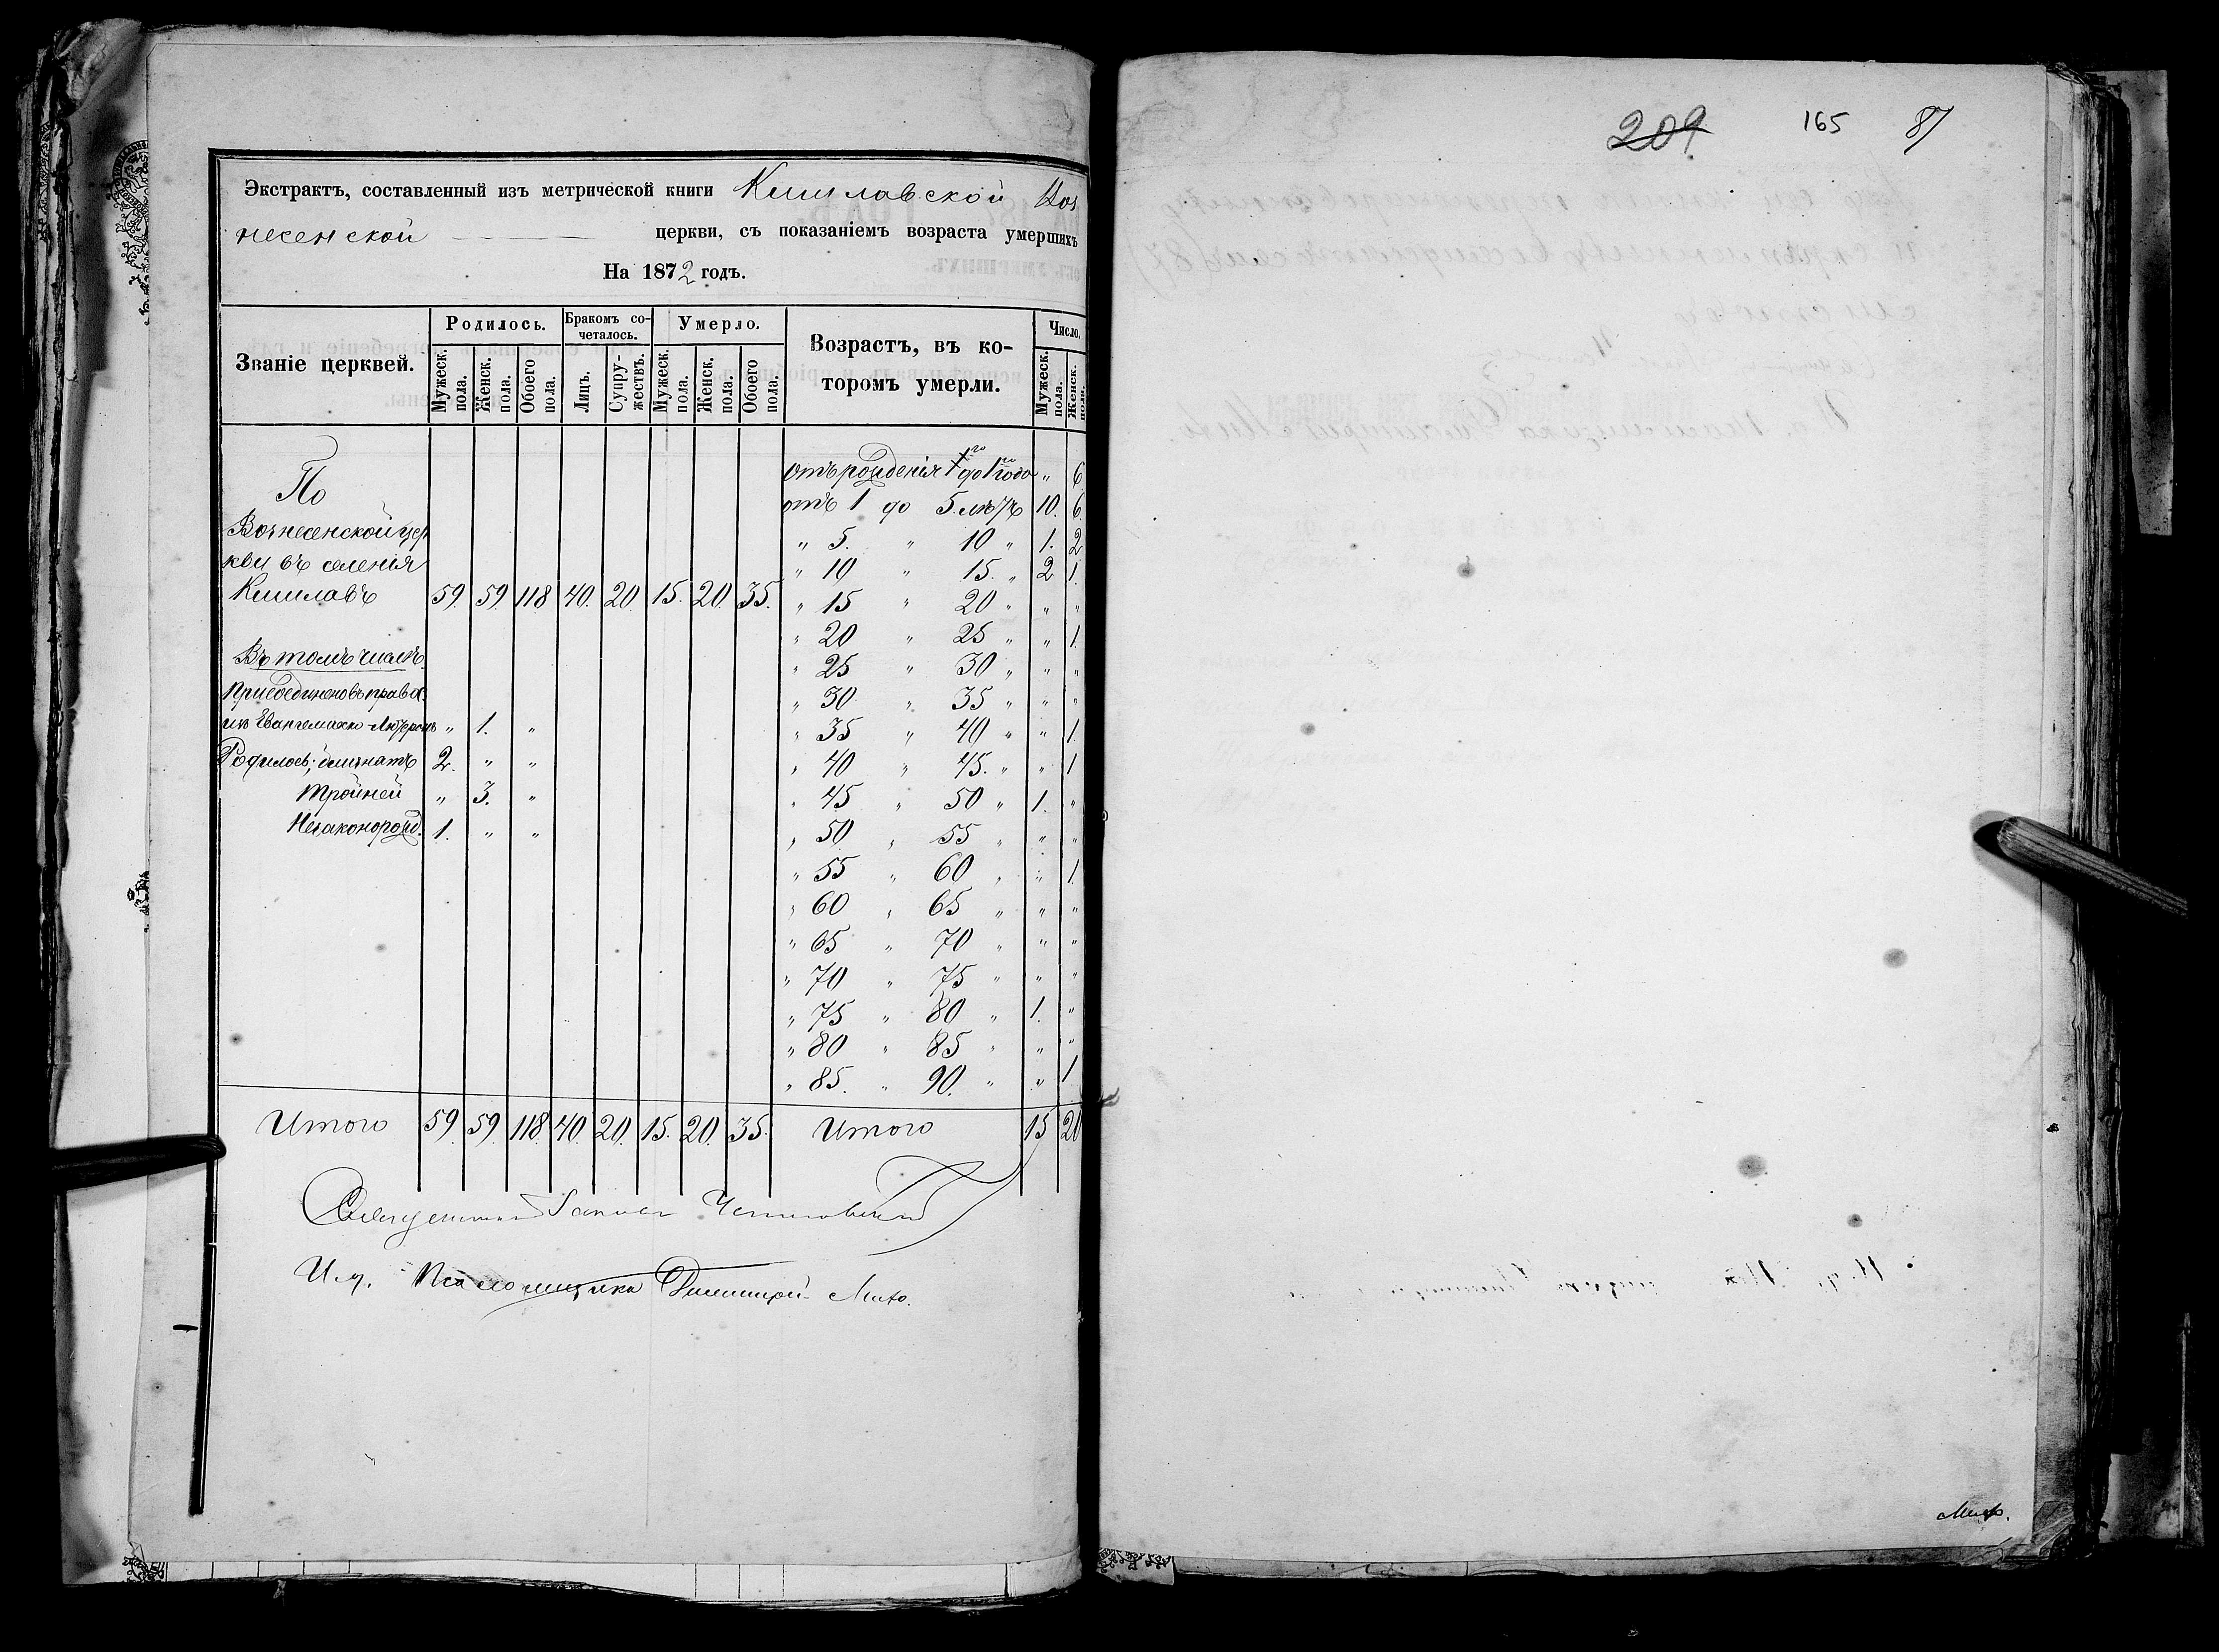 Экстрактъ, составленный изъ метрической книги Кишлавской Воз
несенской церкви, съ показаніемъ возраста умершихъ
На 1872 годъ.
Званіе церквей. Родилось. Бракомъ сочеталось. Умерло. Возрастъ, въ которомъ умерли. Число.
Мужеск. пола. Женск. пола. Обоего пола. Лицъ. Супружествъ. Мужеск. пола. Женск. пола. Обоего пола. Мужеск. пола. Женск. пола.
По
Вознесенской цер
кви въ селенія
Кишлавъ 59. 59. 118 40. 20. 15. 20. 35.
Въ томъ числѣ
Присоединено въ правос.
изъ Евангелическо-Лютеранъ " 1. "
Родилось: близнатъ 2. " "
тройней " 3. "
Незаконорожд. 1. " "
отъ рожденія до 1го года " 6
отъ 1 до 5. лѣтъ 10. 6.
" 5. " 10 " 1. 2
" 10 " 15. " 2 1.
" 15 " 20 " " "
" 20 " 25 " " 1.
" 25 " 30 " " "
" 30 " 35 " " "
" 35 " 40 " " 1.
" 40 " 45. " " 1
" 45 " 50 " 1. "
" 50 " 55 " " "
" 55 " 60 " " 1.
" 60 " 65 " " "
" 65 " 70 " " "
" 70 " 75 " " "
" 75 " 80 " 1. "
" 80 " 85 " " "
" 85. " 90. " " 1
Итого 59. 59. 118. 40. 20. 15. 20. 35. Итого 15 20
Священникъ
И. д. Псаломщика Димитрій Михо.
209 165 87
Михо.